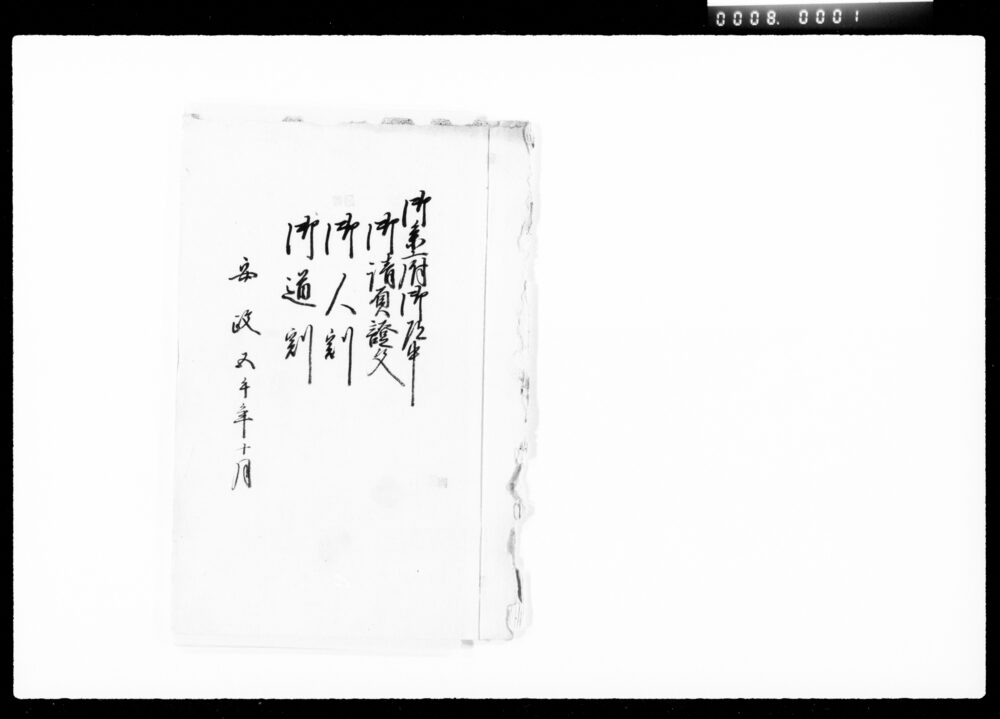 0008. 0001
御参府御願牢
御請負證文
御人割
御道割
安政五午年十月